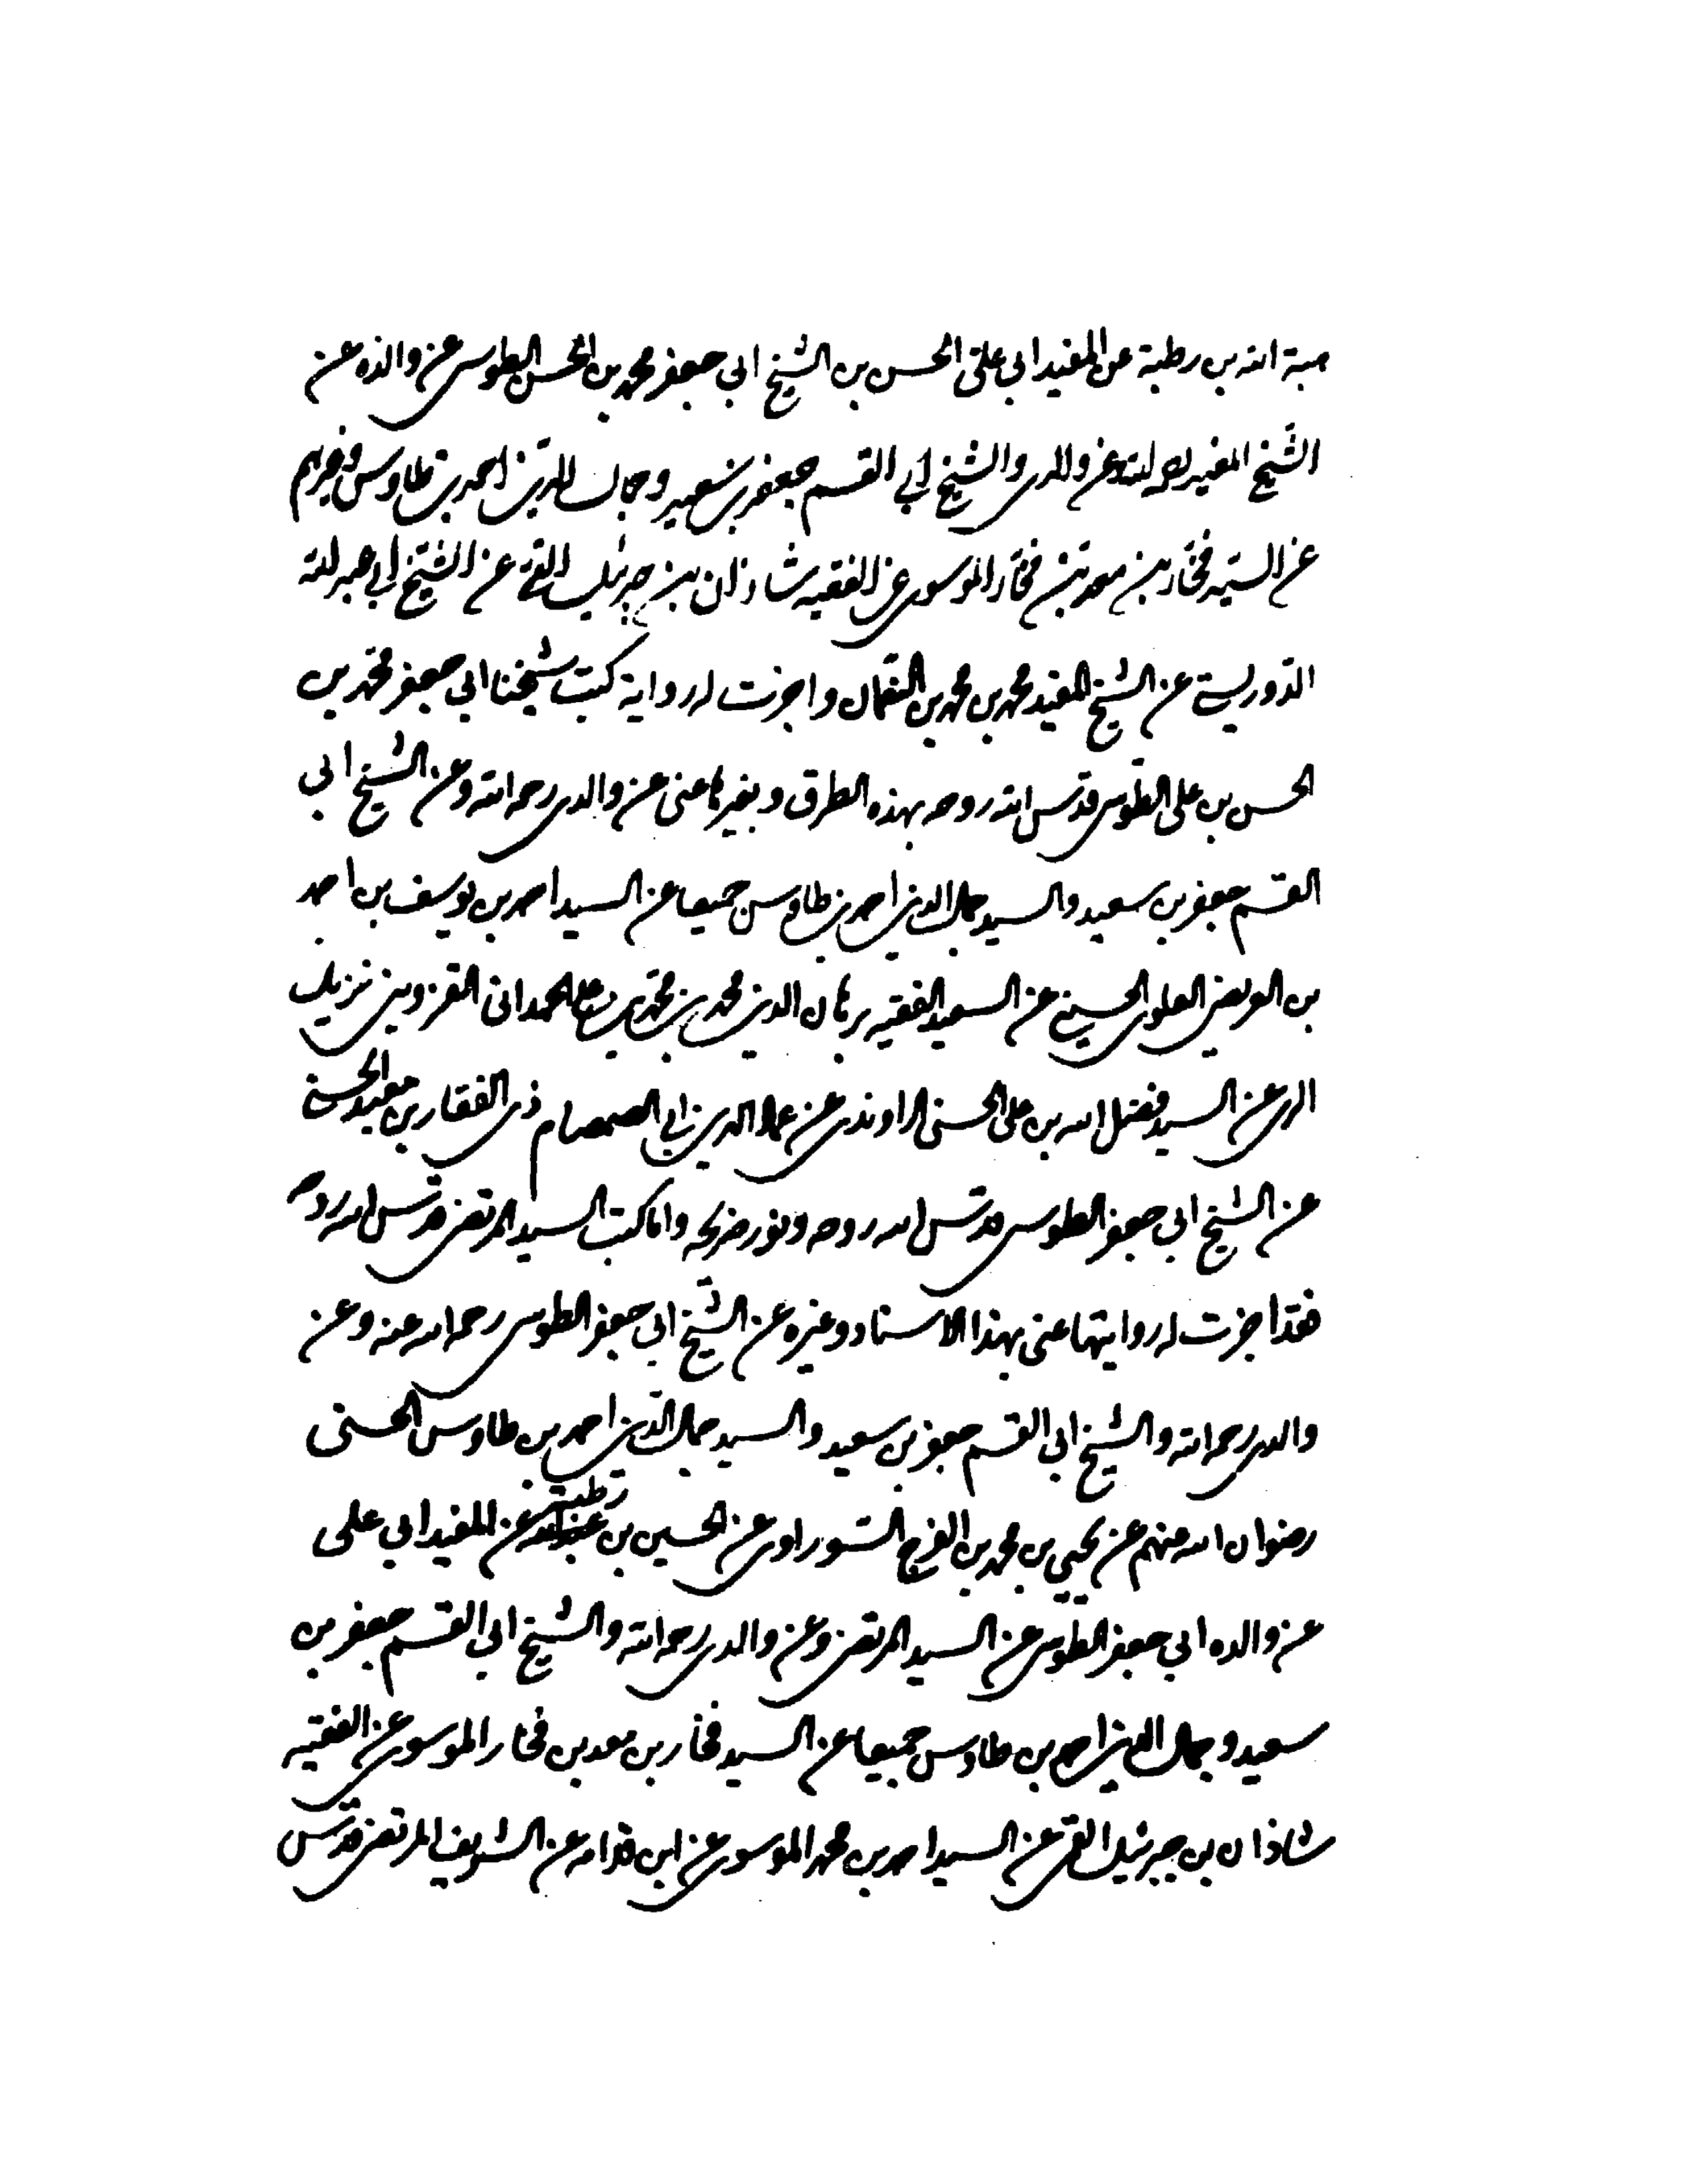 هبة الله بن رطبة عن المفيد ابى على الحسن بن الشيخ ابي جعفر محمد بن الحسن الطوسى عن والده عن
الشيخ المفيد وعن والدى والشيخ ابي القسم جعفر بن سعيد وجمال الدين احمد بن طاوس وغيرهم
عن السيد فخار بن معد بن فخار الموسوى عن الفقيه شاذان بن جبرئيل القمى عن الشيخ ابي عبد الله
الدوريستى عن الشيخ المفيد محمد بن محمد بن النعمان واجزت له رواية كتب شيخنا ابي جعفر محمد بن
الحسن بن على الطوسى قدس الله روحه بهذه الطرق وبغيرها عنى عن والدى رحمه الله وعن الشيخ ابى
القسم جعفر بن سعيد والسيد جمال الدين احمد بن طاوس جميعا عن السيد احمد بن يوسف بن احمد
بن العريضى العلوى الحسينى عن السعيد الفقيه برهان الدين محمد بن محمد بن على الحمدانى القزوينى نزيل
الرى عن السيد فضل الله بن على الحسنى الراوندى عن عماد الدين ابي الصمصام ذى الفقار بن معبد الحسنى
عن الشيخ ابي جعفر الطوسى قدس الله روحه ونور ضريحه واما كتب السيد المرتضى قدس الله روحه
فقد اجزت له روايتها عنى بهذا الاسناد وغيره عن الشيخ ابي جعفر الطوسى رحمه الله عنه وعن
والدى رحمه الله والشيخ ابي القسم جعفر بن سعيد والسيد جمال الدين احمد بن طاوس الحسنى
رضوان الله عنهم عن يحيى بن محمد بن الفرج السوراوى عن الحسين بن رطبة عن المفيد ابي على
عن والده ابي جعفر الطوسى عن السيد المرتضى وعن والدى رحمه الله والشيخ ابي القسم جعفر بن
سعيد وجمال الدين احمد بن طاوس جميعا عن السيد فخار بن معد بن فخار الموسوى عن الفقيه
شاذان بن جبرئيل القمى عن السيد احمد بن محمد الموسوى عن ابن قدامه عن الشريف المرتضى قدس